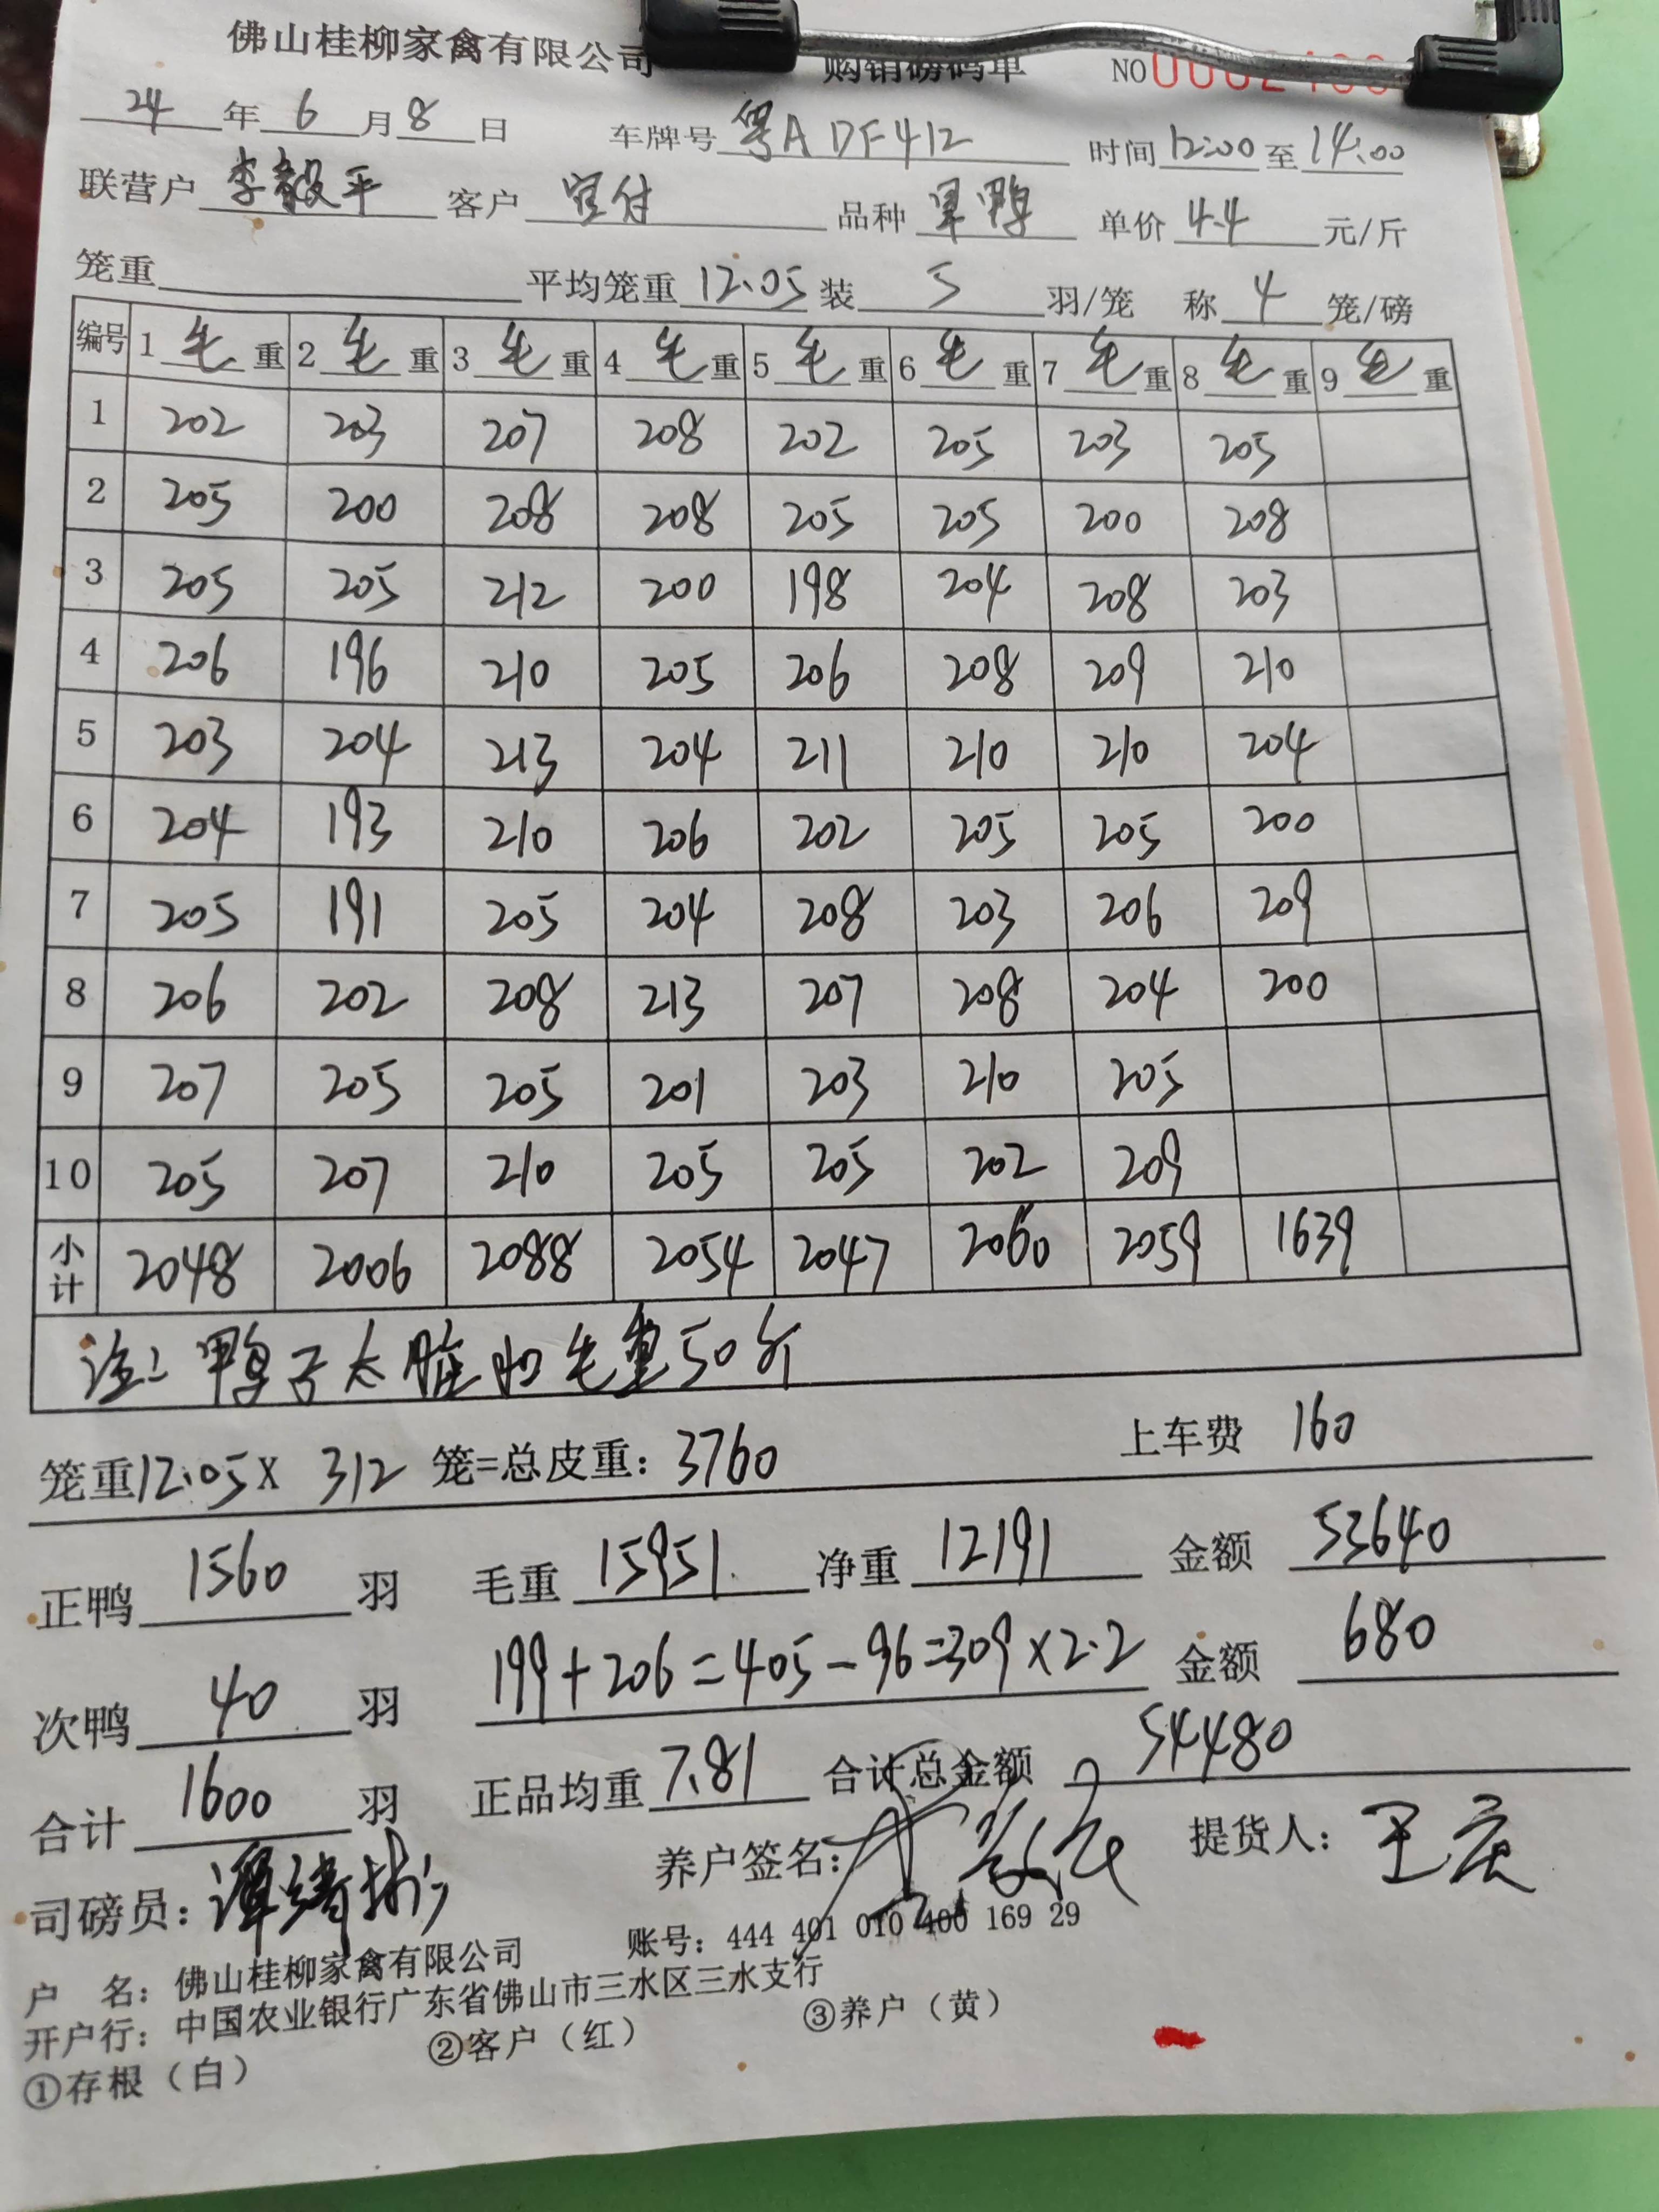 佛山桂柳家禽有限公司 购销磅码单 NO
24年6月8日 车牌号 粤ADF412 时间 12:00 至 14:00
联营户 李毅平 客户 宝付 品种 单价 4.4 元/斤
笼重 平均笼重 12.05 装 5 羽/笼 称 4 笼/磅
编号 1 毛重 2 毛重 3 毛重 4 毛重 5 毛重 6 毛重 7 毛重 8 毛重 9 毛重
1 202 203 207 208 202 205 203 205
2 205 200 208 208 205 205 200 208
3 205 205 212 200 198 204 208 203
4 206 196 210 205 206 208 209 210
5 203 204 213 204 211 210 210 204
6 204 193 210 206 202 205 205 200
7 205 191 205 204 208 203 206 209
8 206 202 208 213 207 208 204 200
9 207 205 205 201 203 210 205
10 205 207 210 205 205 202 209
小计 2048 2006 2088 2054 2047 2060 2059 1639
注: 鸭子太脏扣毛重50斤
笼重12.05 X 312 笼=总皮重: 3760 上车费 160
正鸭 1560 羽 毛重 15951 净重 12191 金额 53640
次鸭 40 羽 199+206=405-96=309×2.2 金额 680
合计 1600 羽 正品均重 7.81 合计总金额 54480
司磅员: 养户签名: 提货人: 王庆
户 名: 佛山桂柳家禽有限公司 账号: 444 401 010 400 169 29
开户行: 中国农业银行广东省佛山市三水区三水支行
①存根（白） ②客户（红） ③养户（黄）